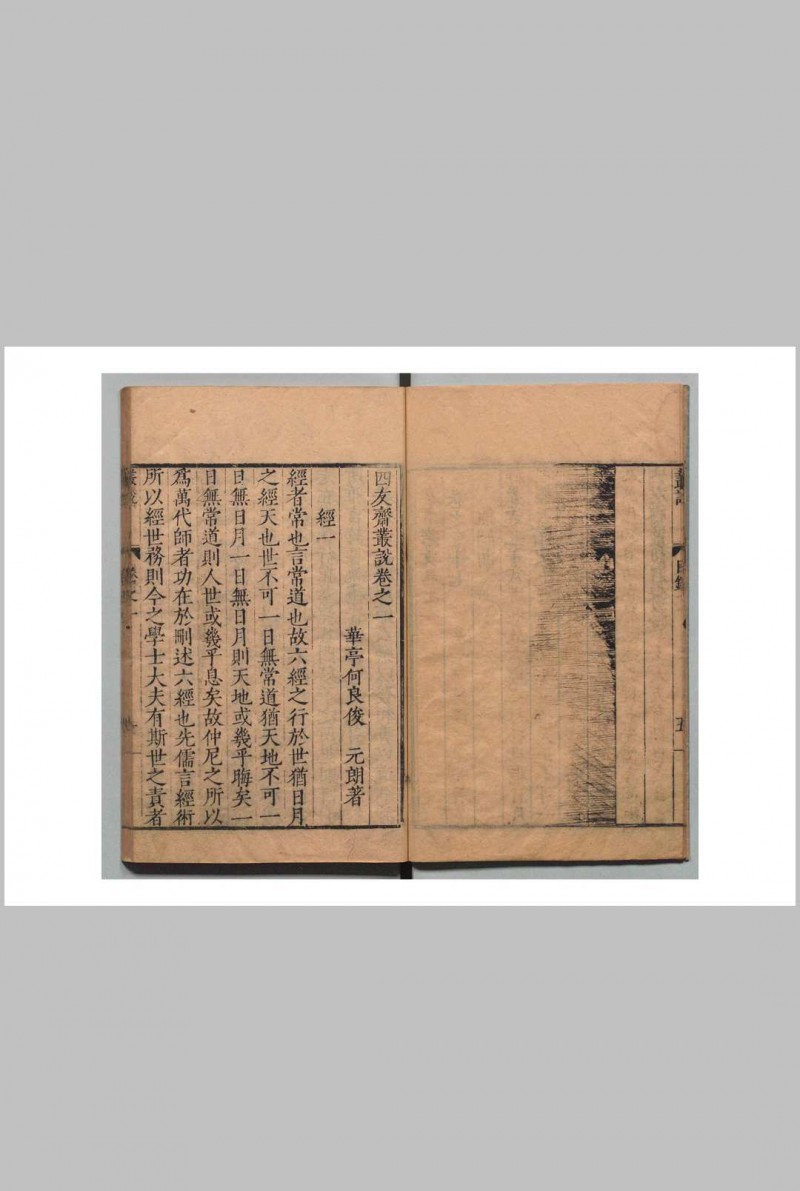 叢說
目錄
五
四友齋叢說卷之一
華亭何良俊 元朗著
經一
經者常也言常道也故六經之行於世猶日月
之經天也世不可一日無常道猶天地不可一
日無日月一日無日月則天地或幾乎晦矣一
日無常道則人世或幾乎息矣故仲尼之所以
爲萬代師者功在於刪述六經也先儒言經術
所以經世務則今之學士大夫有斯世之責者
叢說
卷之一